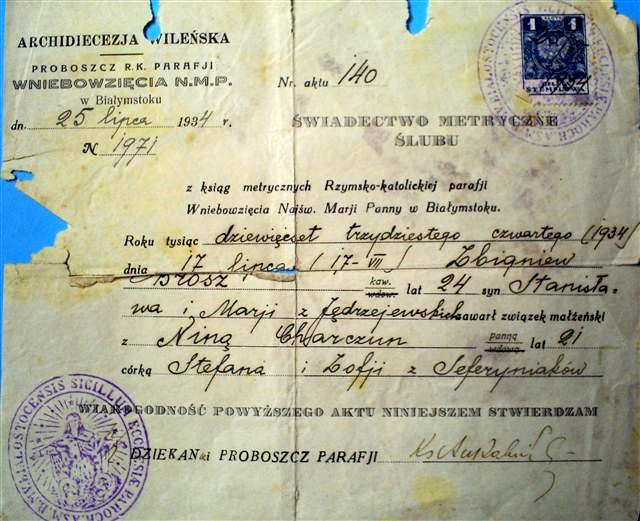 ARCHIDIECEZJA WILEŃSKA
PROBOSZCZ R.K. PARAFJI
WNIEBOWZIĘCIA N.M.P.
w Białymstoku
dn. 25 lipca 1934 r.
N 1971
Nr. aktu 140
ŚWIADECTWO METRYCZNE
ŚLUBU
z ksiąg metrycznych Rzymsko-katolickiej parafji
Wniebowzięcia Najśw. Marji Panny w Białymstoku.
Roku tysiąc dziewięćset trzydziestego czwartego (1934)
dnia 17 lipca (17-VII) Zbigniew
kaw.
wdow. lat 24 syn Stanisła-
wa i Marji z Jędrzejewskich zawarł związek małżeński
z Niną Charczun panną wdową lat 21
córką Stefana i Zofji z Seferyniaków
WIAROGODNOŚĆ POWYŻSZEGO AKTU NINIEJSZEM STWIERDZAM
DZIEKAN i PROBOSZCZ PARAFJI